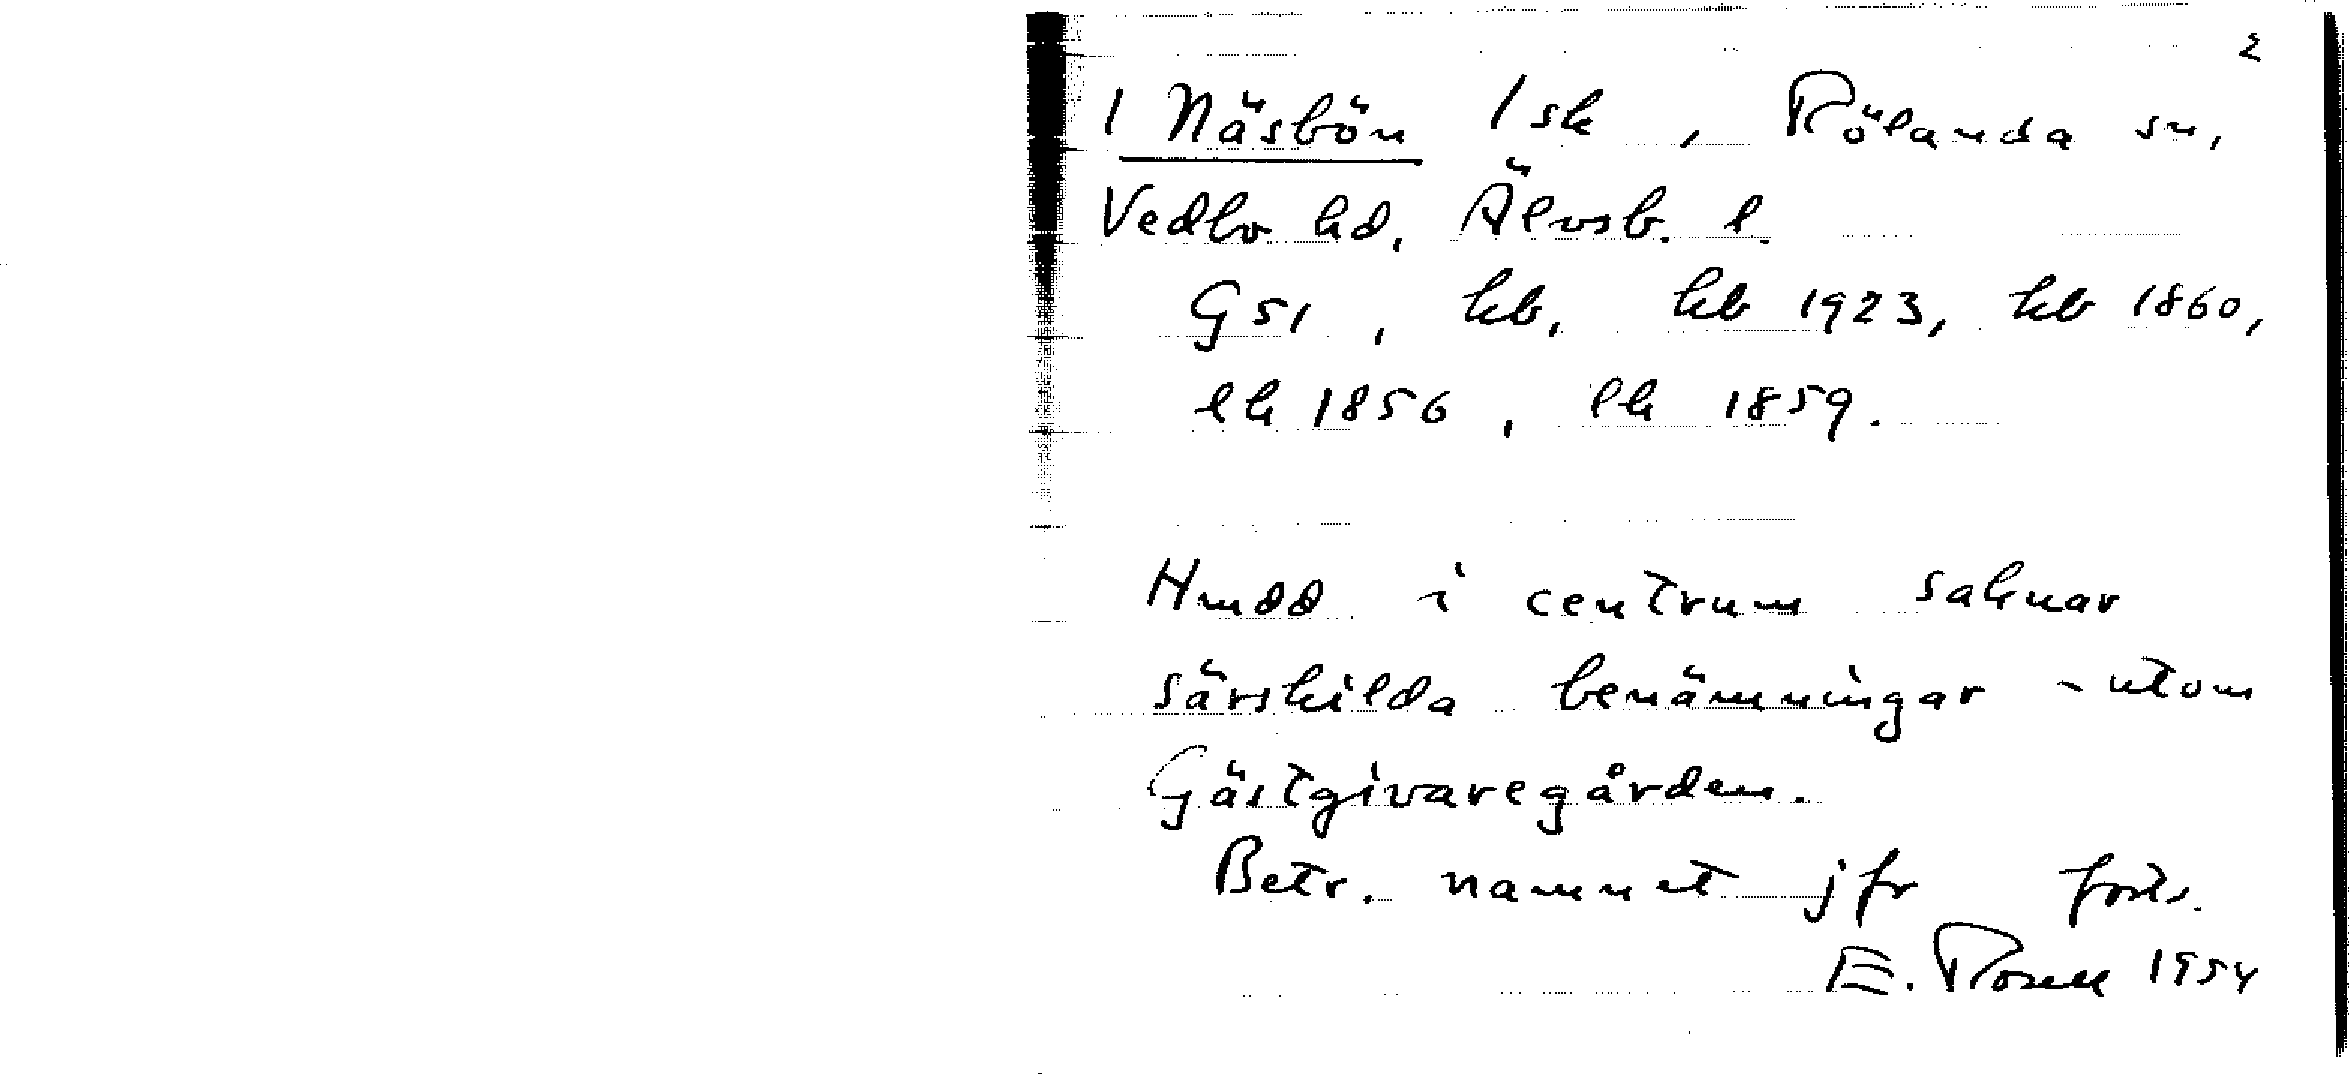 2
1 Näsbön 1 sk, Rölanda sn,
Vedbo hd. Älvsb. l.
G 51, kb. kb 1923, kb 1860,
lk 1856, lk 1859.
Hmdd i centrum saknar
särskilda benämningar - utom
Gästgivaregården.
Betr. namnet jfr forts.
E. Rosell 1954